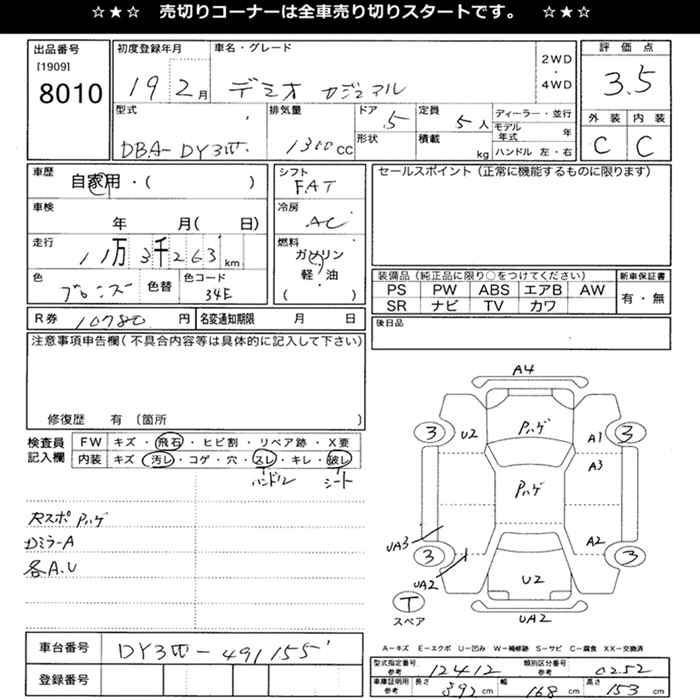 ☆★☆ 売切りコーナーは全車売り切りスタートです。 ☆★☆
出品番号
[1909]
8010
初度登録年月
19 2月
車名・グレード
デミオ カジュアル
2WD
・
4WD
評価点
3.5
外装 内装
C C
型式
DBA-DY3W
排気量
1300cc
ドア 5
形状
定員
5人
積載
kg
ディーラー・並行
モデル年式 年
ハンドル 左・右
車歴
自家用・( )
車検
年 月( 日)
走行
11万3千263km
色
ブロンズ
色替
色コード
34E
シフト
FAT
冷房
AC
燃料
ガソリン
軽・油
( )
セールスポイント(正常に機能するものに限ります)
装備品(純正品に限り○をつけてください)
PS PW ABS エアB AW
SR ナビ TV カワ
新車保証書
有・無
R券 10780円
名変通知期限 月 日
後日品
注意事項申告欄(不具合内容等は具体的に記入して下さい)
修復歴 有 〔箇所 〕
検査員
記入欄
FW キズ・飛石・ヒビ割・リペア跡・X要
内装 キズ・汚レ・コゲ・穴・スレ・キレ・破レ
ハンドル シート
RスポPハゲ
Dミラ-A
各A.U
A4
3 U2 Pハゲ A1 3
A3
Pハゲ
UA3 A2
3 UA2 3
U2
T
スペア
UA2
車台番号
DY3W-491155
登録番号
A-キズ E-エクボ U-凹み W-補修跡 S-サビ C-腐食 XX-交換済
型式指定番号
参考
12412
類別区分番号
参考
0252
車庫証明用
参考
長さ 392cm 幅 168cm 高さ 153cm